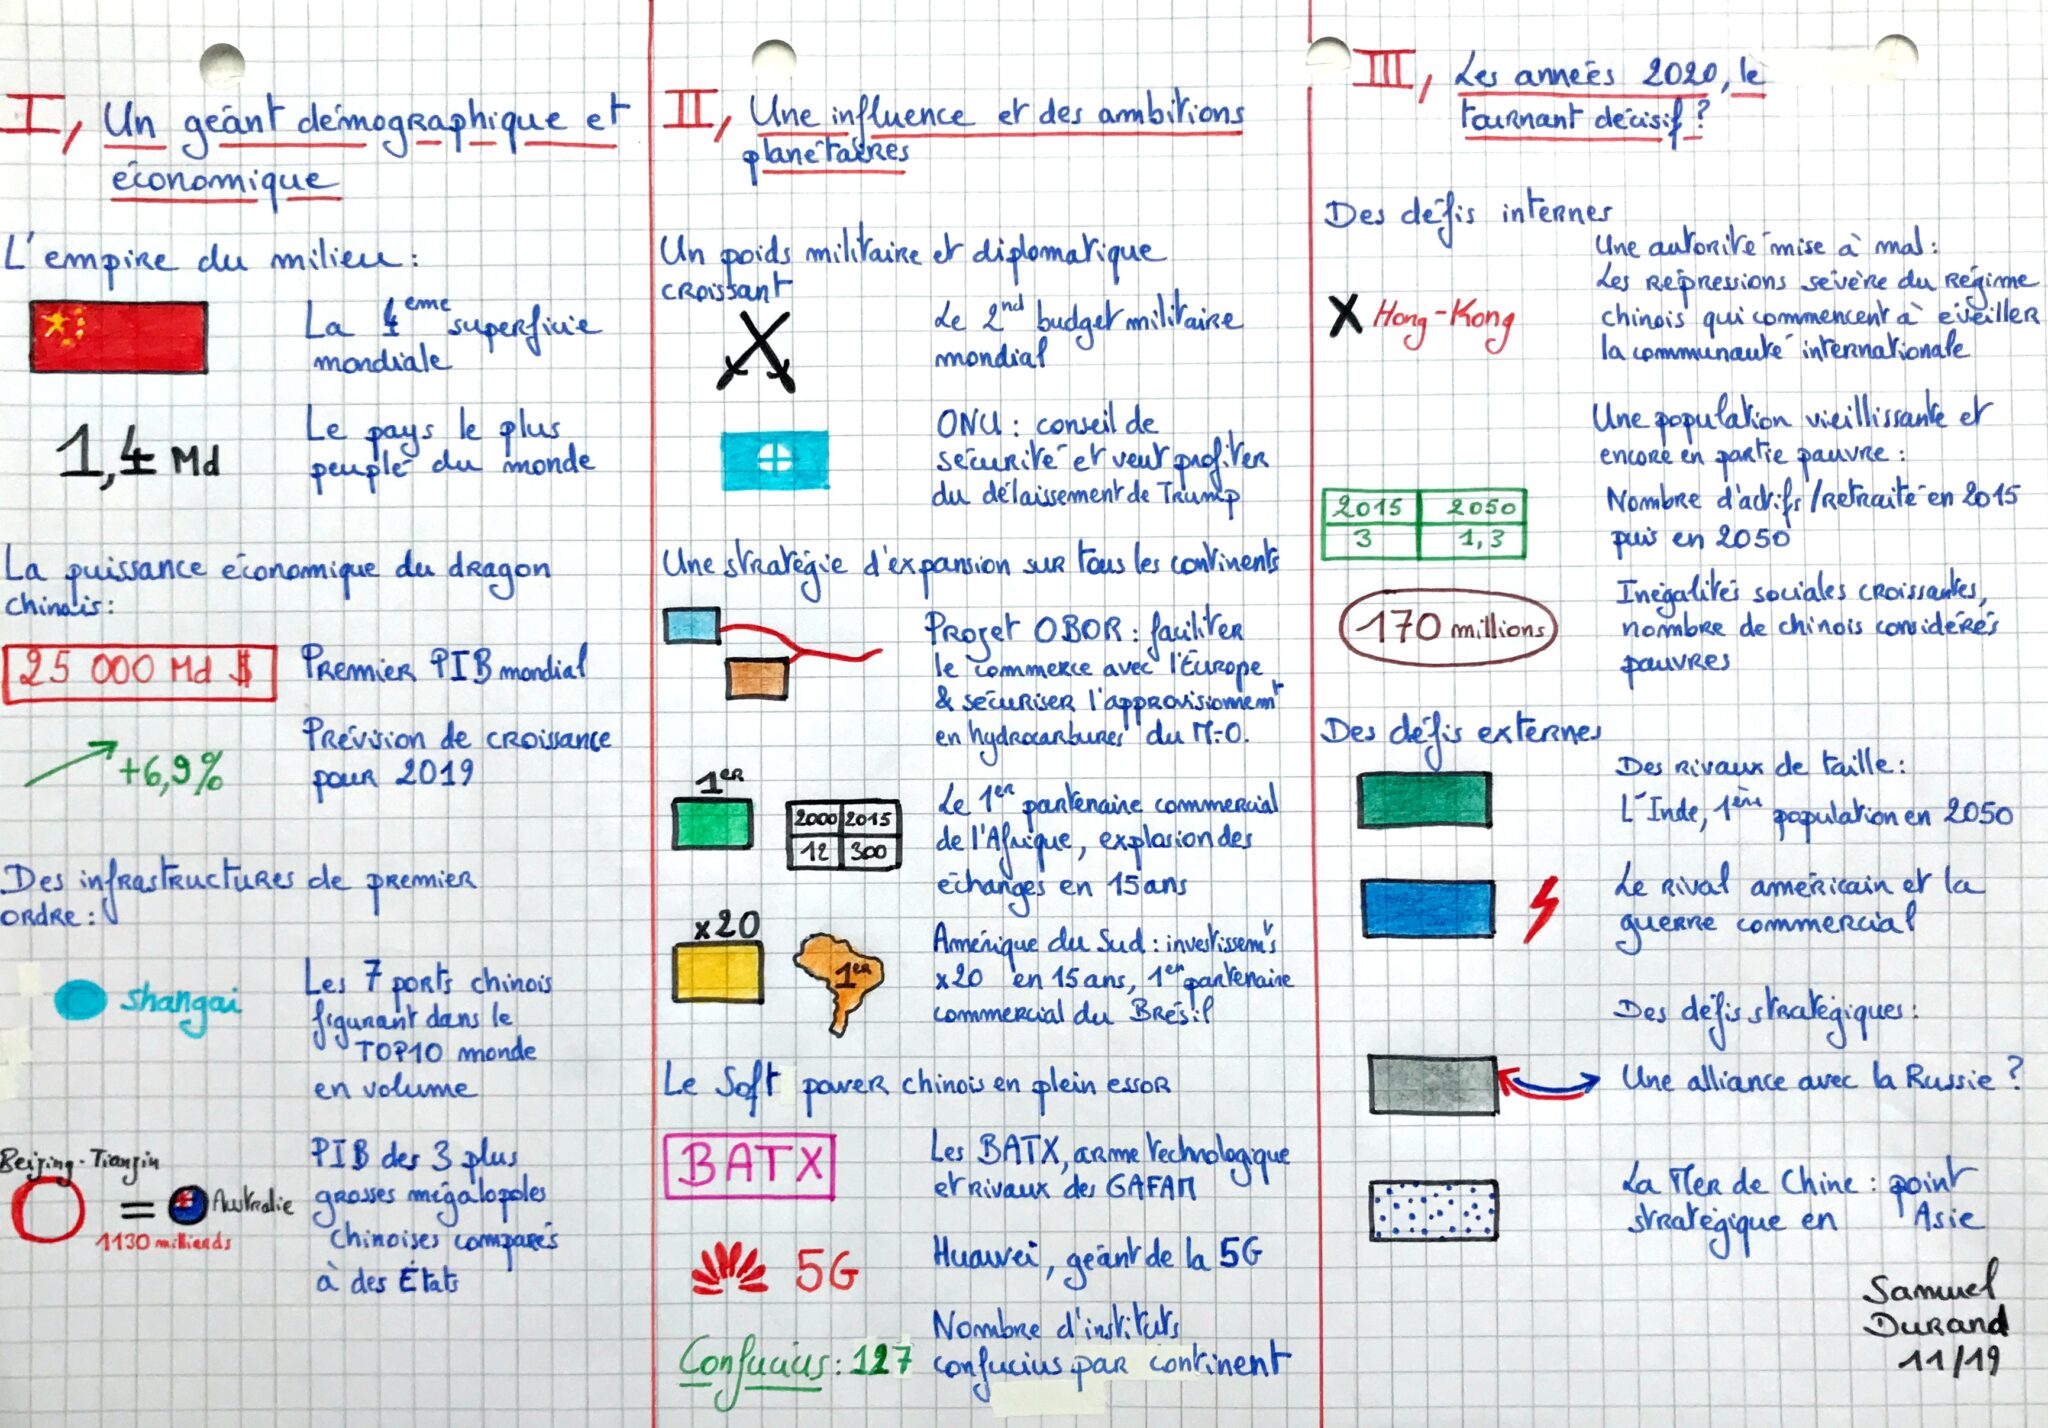 I, Un géant démographique et
économique
L'empire du milieu :
La 4ème superficie
mondiale
1,4 Md
Le pays le plus
peuplé du monde
La puissance économique du dragon
chinois :
25 000 Md $
Premier PIB mondial
+6,9%
Prévision de croissance
pour 2019
Des infrastructures de premier
ordre :
Shangai
Les 7 ports chinois
figurant dans le
TOP10 monde
en volume
Beijing-Tianjin
= Australie
1130 milliards
PIB des 3 plus
grosses mégalopoles
chinoises comparés
à des États
II, Une influence et des ambitions
planétaires
Un poids militaire et diplomatique
croissant
Le 2nd budget militaire
mondial
ONU : conseil de
sécurité et veut profiter
du délaissement de Trump
Une stratégie d'expansion sur tous les continents
Projet OBOR : faciliter
le commerce avec l'Europe
& sécuriser l'approvisionnemt
en hydrocarbures du M-O.
1er
2000 2015
12 300
Le 1er partenaire commercial
de l'Afrique, explosion des
échanges en 15 ans
x20
1er
Amérique du Sud : investissemts
x20 en 15 ans, 1er partenaire
commercial du Brésil
Le Soft power chinois en plein essor
BATX
Les BATX, arme technologique
et rivaux des GAFAM
5G
Huawei, géant de la 5G
Confucius : 127
Nombre d'instituts
confucius par continent
III, Les années 2020, le
tournant décisif ?
Des défis internes
X Hong-Kong
Une autorité mise à mal :
Les répressions sévère du régime
chinois qui commencent à éveiller
la communauté internationale
Une population vieillissante et
encore en partie pauvre :
2015 2050
3 1,3
Nombre d'actifs/retraité en 2015
puis en 2050
170 millions
Inégalités sociales croissantes,
nombre de chinois considérés
pauvres
Des défis externes
Des rivaux de taille :
L'Inde, 1ère population en 2050
Le rival américain et la
guerre commercial
Des défis stratégiques :
Une alliance avec la Russie ?
La Mer de Chine : point
stratégique en Asie
Samuel
Durand
11/19